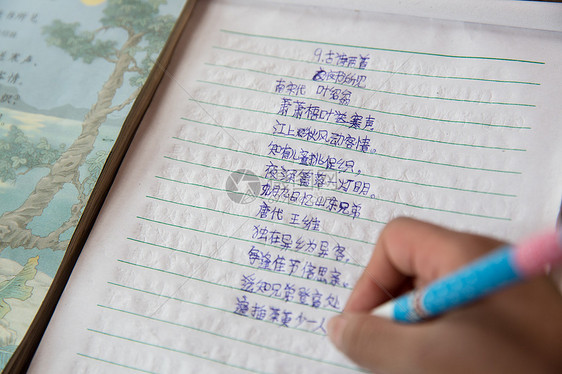 9.古诗两首
夜书所见
南宋代 叶绍翁
萧萧梧叶送寒声
江上秋风动客情。
知有儿童挑促织。
夜深篱落一灯明。
九月九日忆山东兄弟
唐代 王维
独在异乡为异客。
每逢佳节倍思亲。
遥知兄弟登高处
遍插茱萸少一人